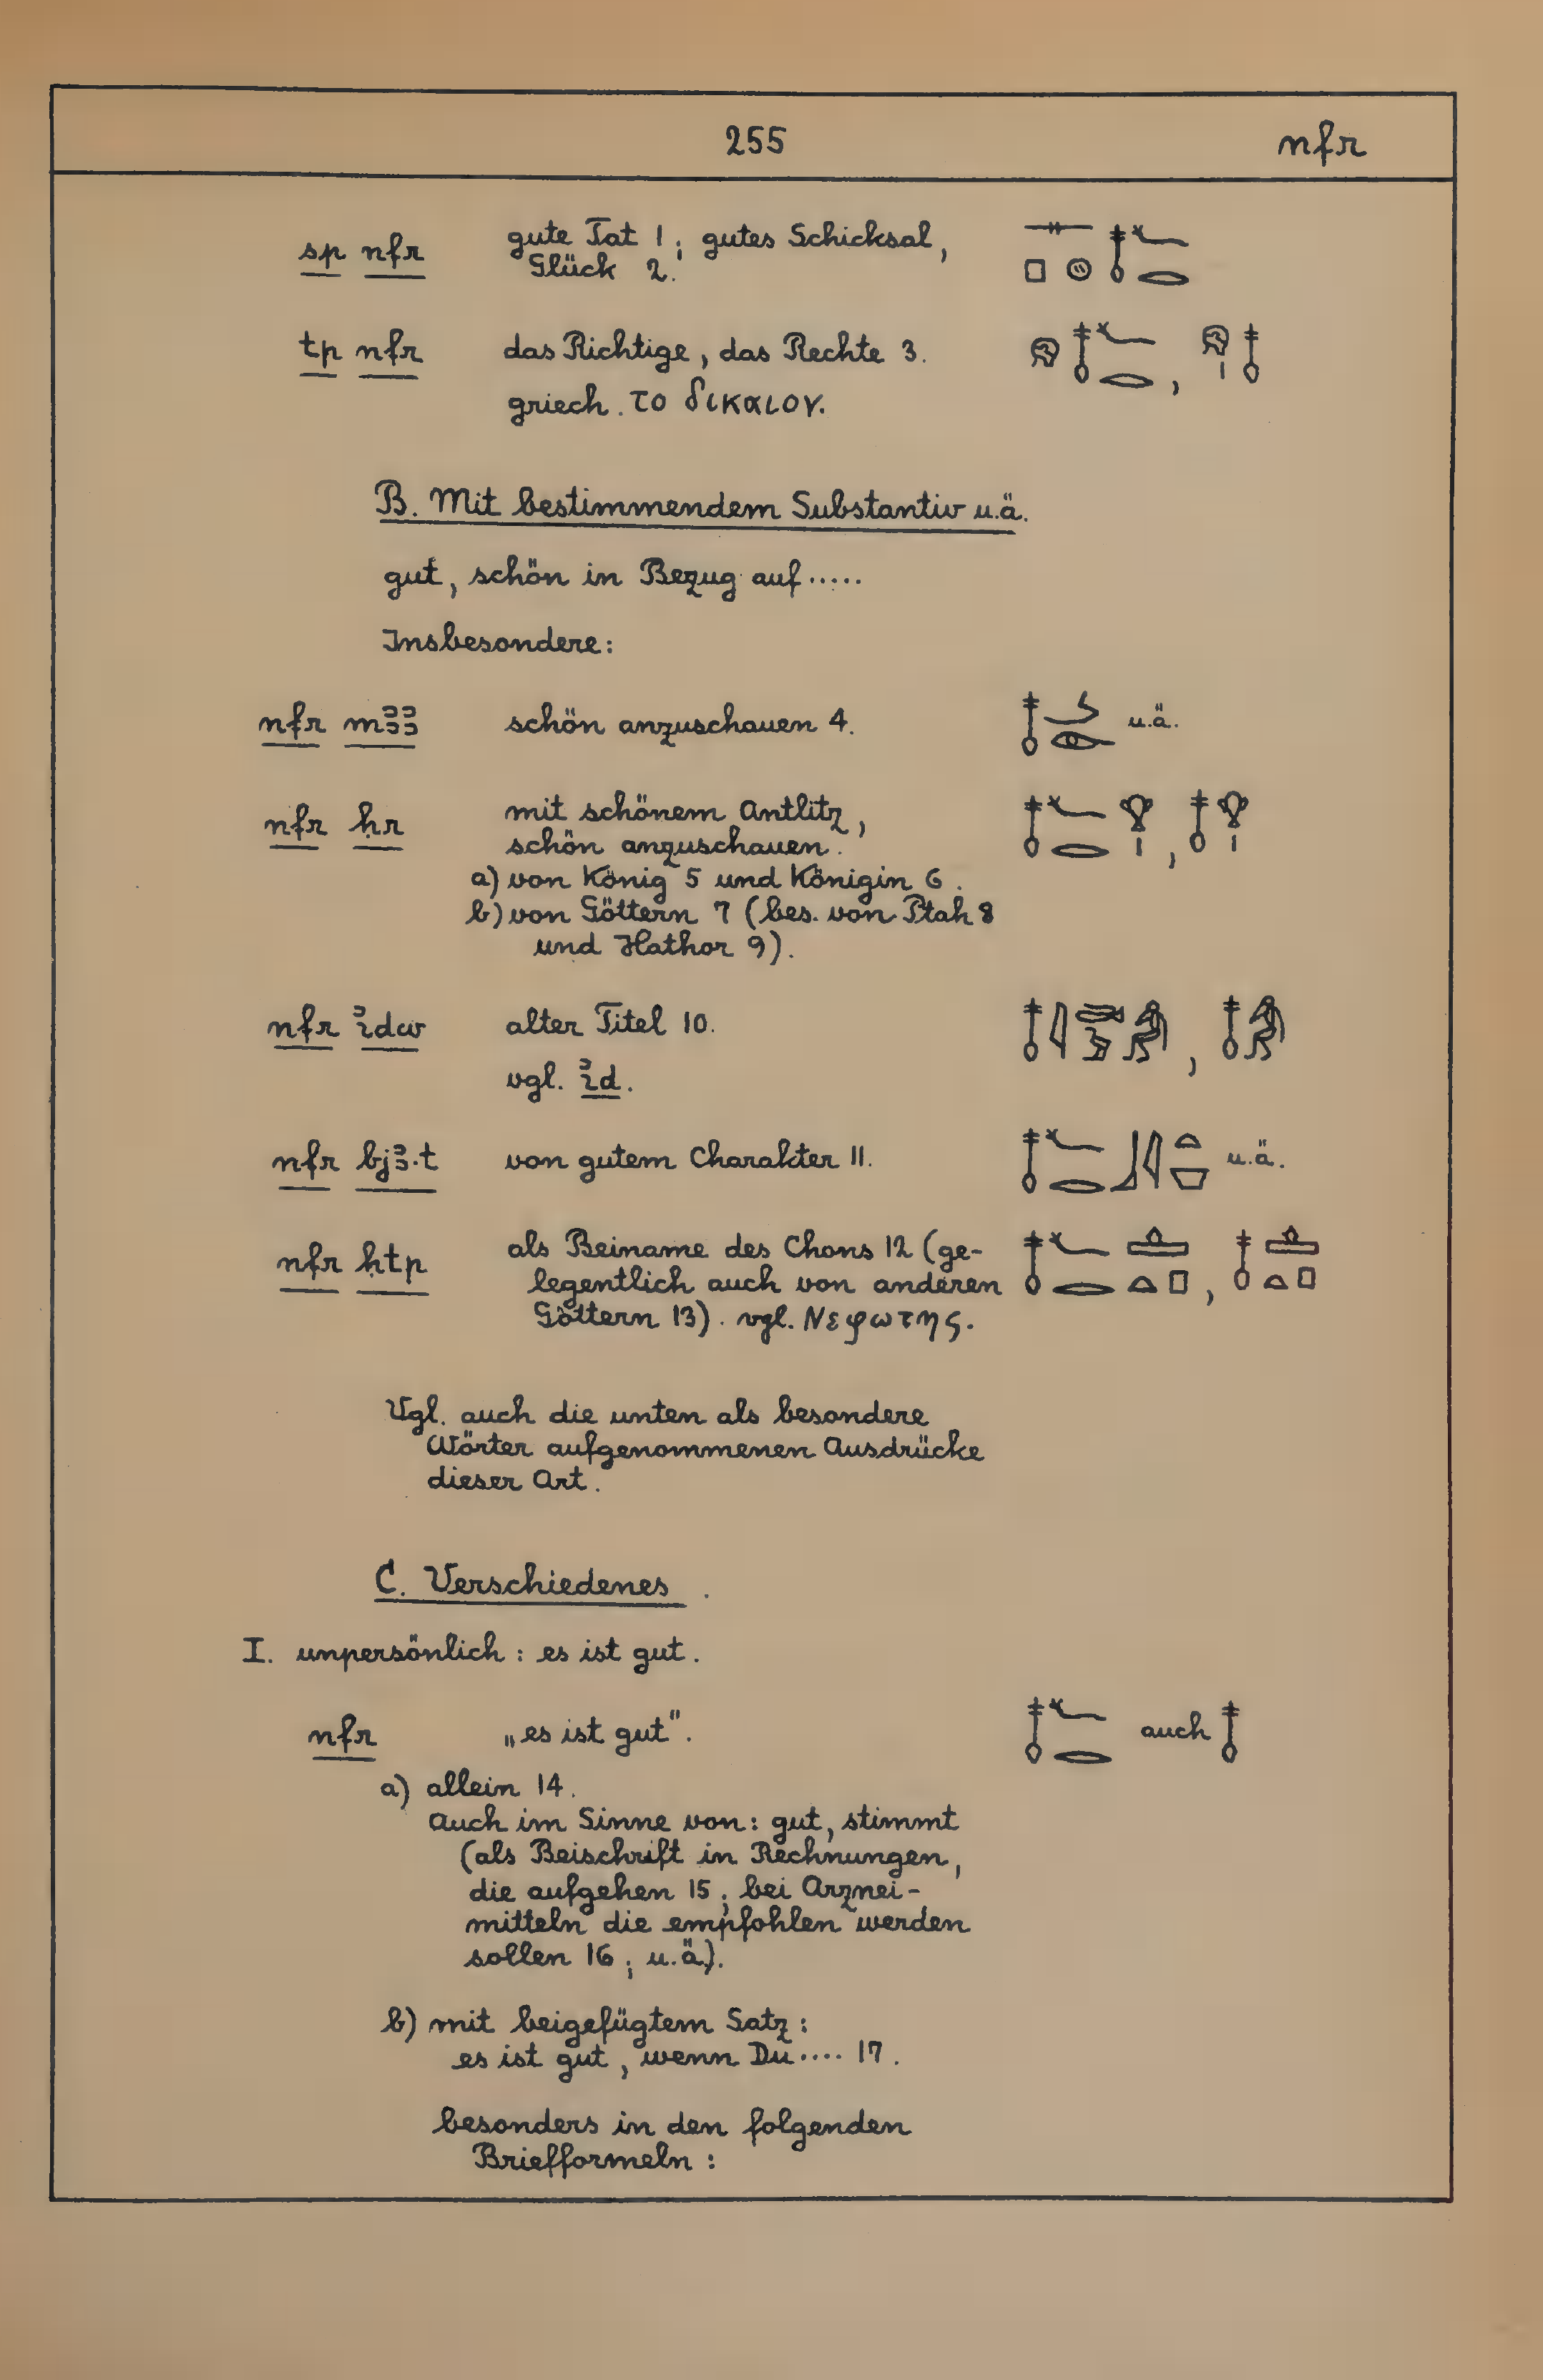 255 nfr
sp nfr gute Tat 1; gutes Schicksal,
Glück 2.
tp nfr das Richtige, das Rechte 3.
griech. το δικαιον.
B. Mit bestimmendem Substantiv u.ä.
gut, schön in Bezug auf.....
Insbesondere:
nfr mꜣꜣ schön anzuschauen 4. u.ä.
nfr ḥr mit schönem Antlitz,
schön anzuschauen.
a) von König 5 und Königin 6.
b) von Göttern 7 (bes. von Ptah 8
und Hathor 9).
nfr ꞽdw alter Titel 10.
vgl. ꞽd.
nfr bjꜣ.t von gutem Charakter 11. u.ä.
nfr ḥtp als Beiname des Chons 12 (ge-
legentlich auch von anderen
Göttern 13). vgl. Νεφωτης.
Vgl. auch die unten als besondere
Wörter aufgenommenen Ausdrücke
dieser Art.
C. Verschiedenes.
I. unpersönlich: es ist gut.
nfr „es ist gut". auch
a) allein 14.
Auch im Sinne von: gut, stimmt
(als Beischrift in Rechnungen,
die aufgehen 15; bei Arznei-
mitteln die empfohlen werden
sollen 16; u.ä.).
b) mit beigefügtem Satz:
es ist gut, wenn Du.... 17.
besonders in den folgenden
Briefformeln: